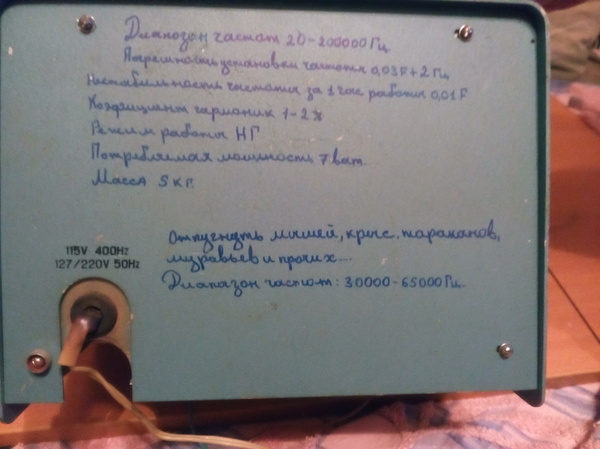 Диапозон частот 20-200000 Гц
Погрешность установки частоты 0,03F+2 Гц
Нестабильность частоты за 1 час работы 0,01F
Коэфициант гармоник 1-2%
Режим работы НГ
Потребляемая мощность 7 ват.
Масса 5 кг.
115V 400Hz
127/220V 50Hz
Отпугнуть мышей, крыс, тараканов,
муравьев и прочих....
Диапазон частот: 30000-65000 Гц.